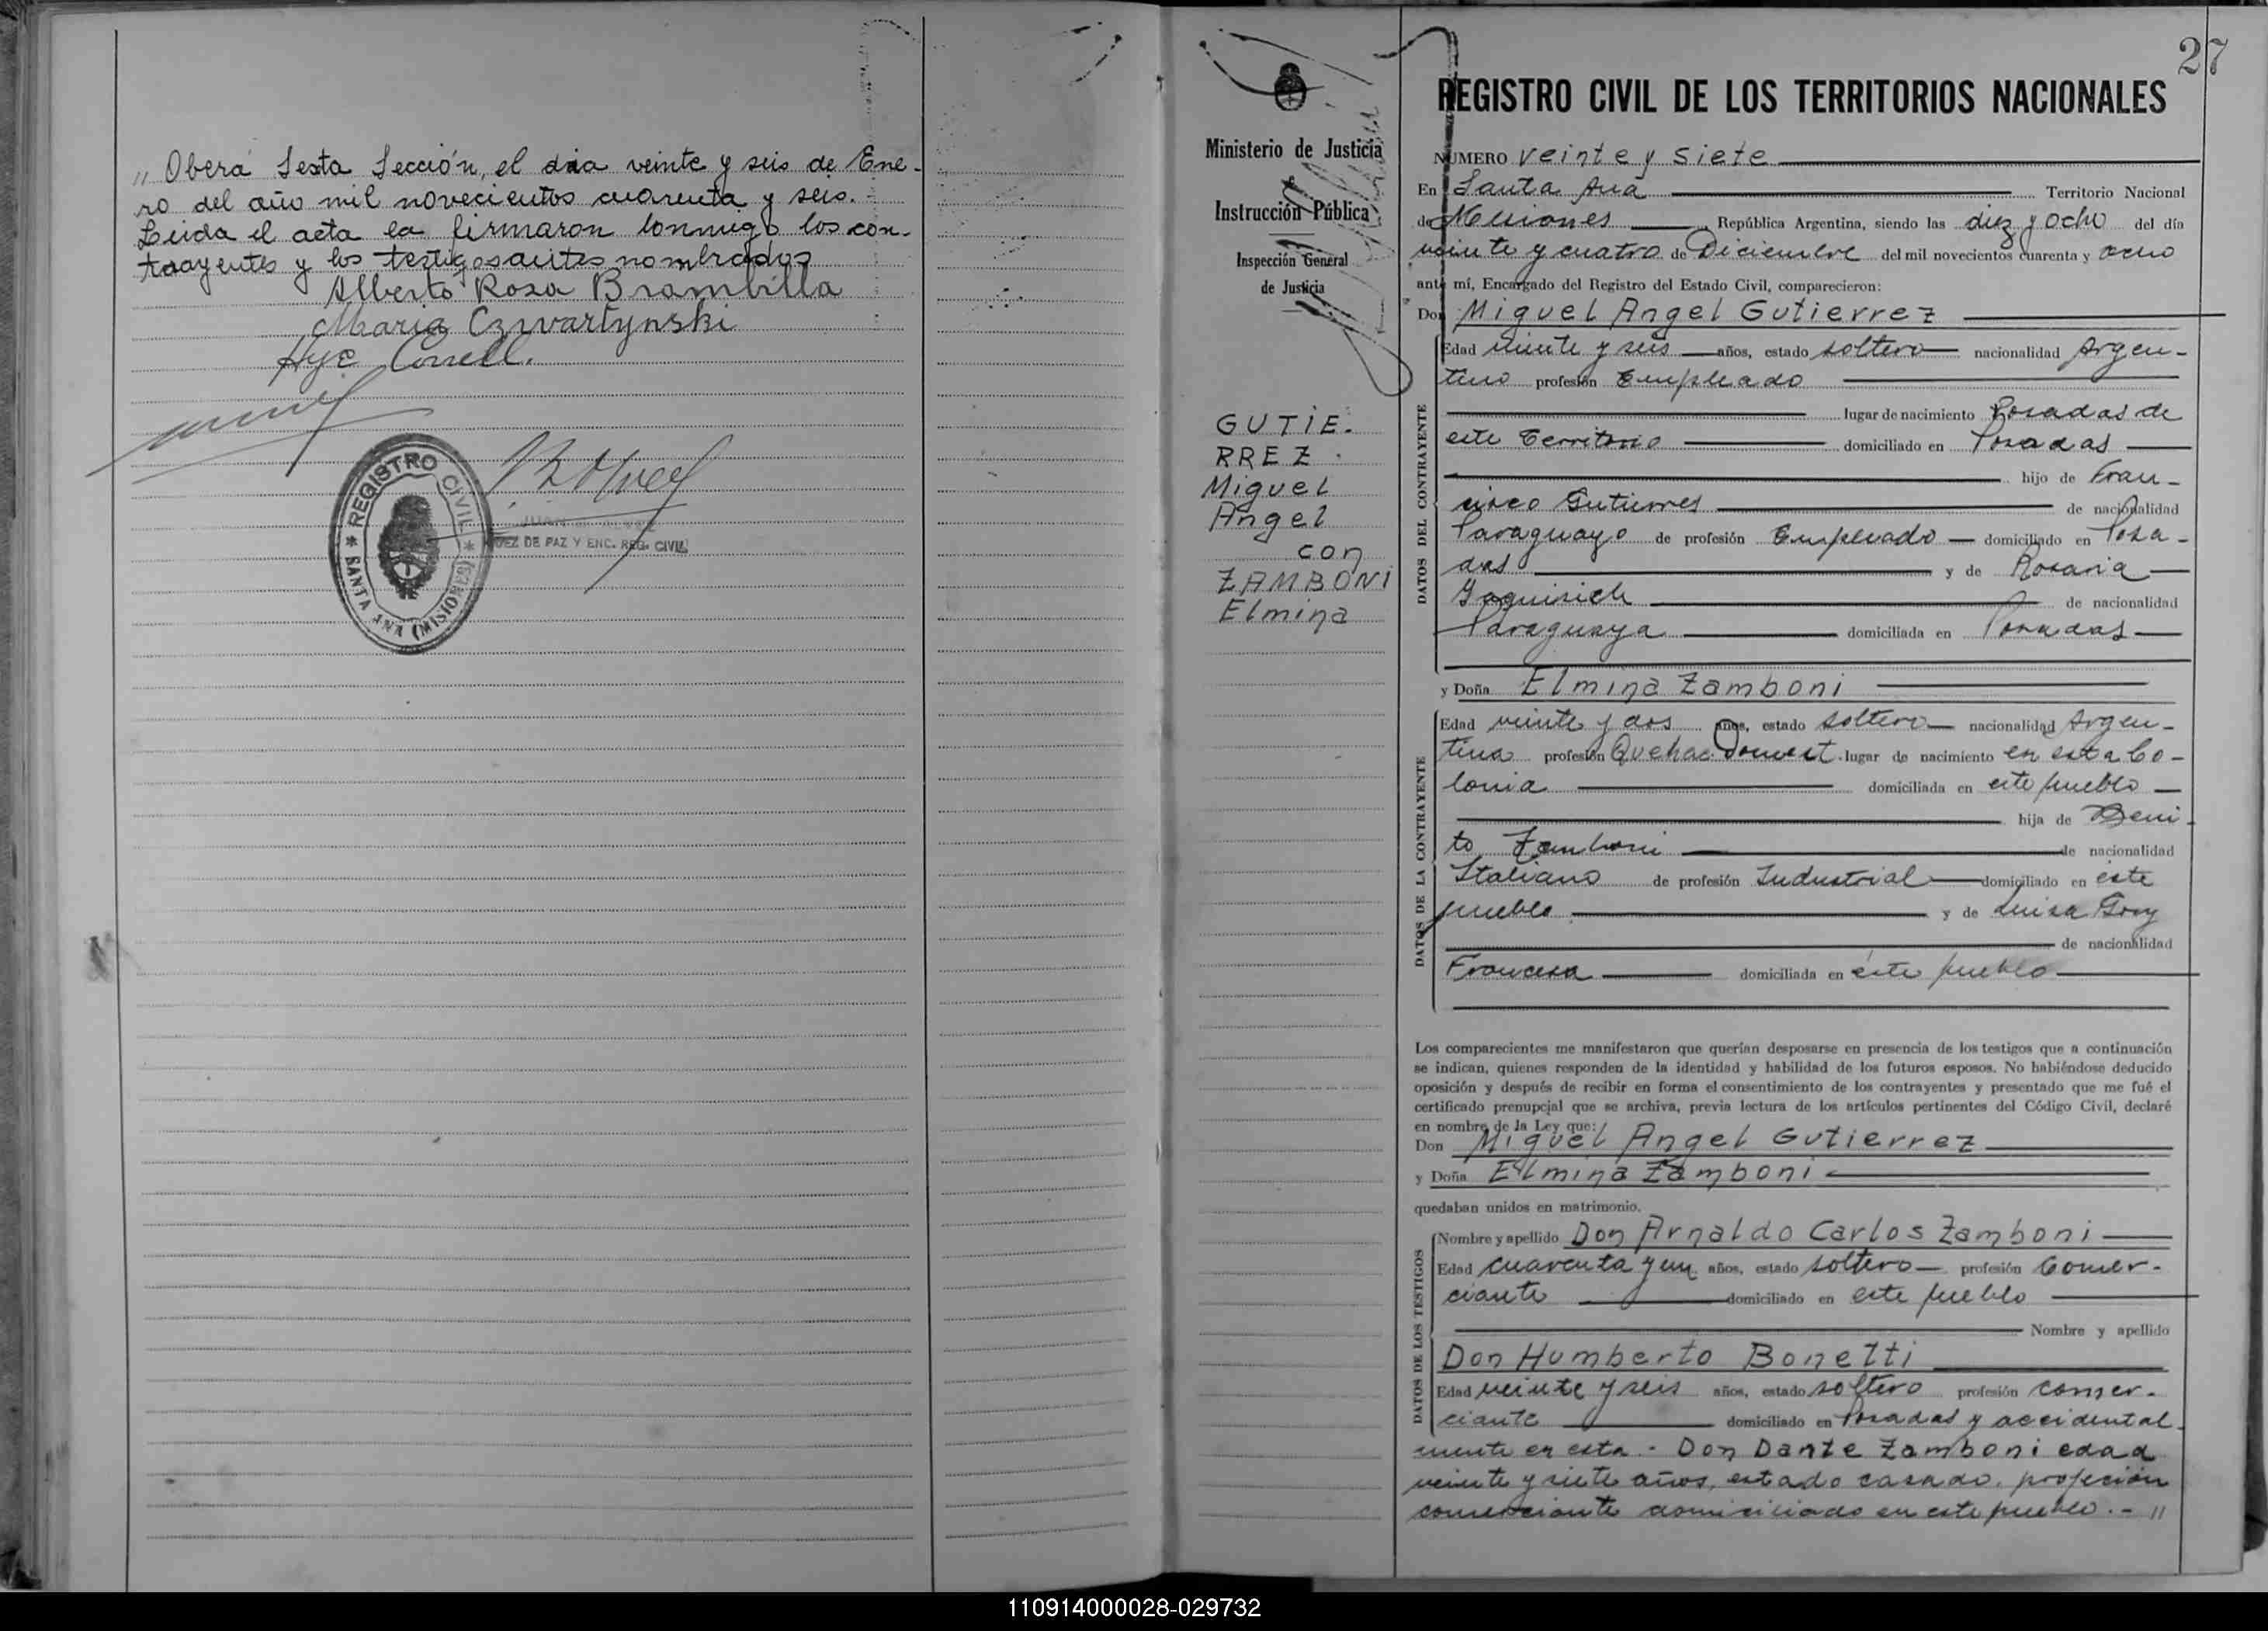 „ Oberá Sexta Sección, el día veinte y seis de Ene-
ro del año mil novecientos cuarenta y seis.
Leida el acta la firmaron conmigo los con-
trayentes y los testigos antes nombrados
Alberto Rosa Brambilla
Maria Czwartynski
REGISTRO CIVIL
SANTA ANA (MISIONES)
JUEZ DE PAZ Y ENC. REG. CIVIL
27
Ministerio de Justicia
Instrucción Pública
Inspección General
de Justicia
GUTIE-
RREZ
Miguel
Angel
con
ZAMBONI
Elmina
REGISTRO CIVIL DE LOS TERRITORIOS NACIONALES
NÚMERO veinte y siete
En Santa Ana Territorio Nacional
de Misiones República Argentina, siendo las diez y ocho del día
veinte y cuatro de Diciembre del mil novecientos cuarenta y ocho
ante mí, Encargado del Registro del Estado Civil, comparecieron:
Don Miguel Angel Gutierrez
DATOS DEL CONTRAYENTE
Edad veinte y seis años, estado soltero nacionalidad Argen-
tino profesión Empleado
lugar de nacimiento Posadas de
este Territorio domiciliado en Posadas
hijo de Fran-
cisco Gutierres de nacionalidad
Paraguayo de profesión Empleado domiciliado en Posa-
das y de Rosaria
de nacionalidad
Paraguaya domiciliada en Posadas
y Doña Elmina Zamboni
DATOS DE LA CONTRAYENTE
Edad veinte y dos años, estado soltera nacionalidad Argen-
tina profesión Quehac Domest. lugar de nacimiento en esta Co-
lonia domiciliada en este pueblo
hija de Beni-
to Zamboni de nacionalidad
Italiano de profesión Industrial domiciliado en este
pueblo y de Luisa
de nacionalidad
Francesa domiciliada en éste pueblo
Los comparecientes me manifestaron que querían desposarse en presencia de los testigos que a continuación
se indican, quienes responden de la identidad y habilidad de los futuros esposos. No habiéndose deducido
oposición y después de recibir en forma el consentimiento de los contrayentes y presentado que me fué el
certificado prenupcial que se archiva, previa lectura de los artículos pertinentes del Código Civil, declaré
en nombre de la Ley que:
Don Miguel Angel Gutierrez
y Doña Elmina Zamboni
quedaban unidos en matrimonio.
DATOS DE LOS TESTIGOS
Nombre y apellido Don Arnaldo Carlos Zamboni
Edad cuarenta y un años, estado soltero profesión Comer-
ciante domiciliado en este pueblo
Nombre y apellido
Don Humberto Bonetti
Edad veinte y seis años, estado soltero profesión comer-
ciante domiciliado en Posadas y accidental
mente en esta.- Don Dante Zamboni edad
veinte y siete años, estado casado, profesión
comerciante domiciliado en este pueblo.- "
110914000028-029732